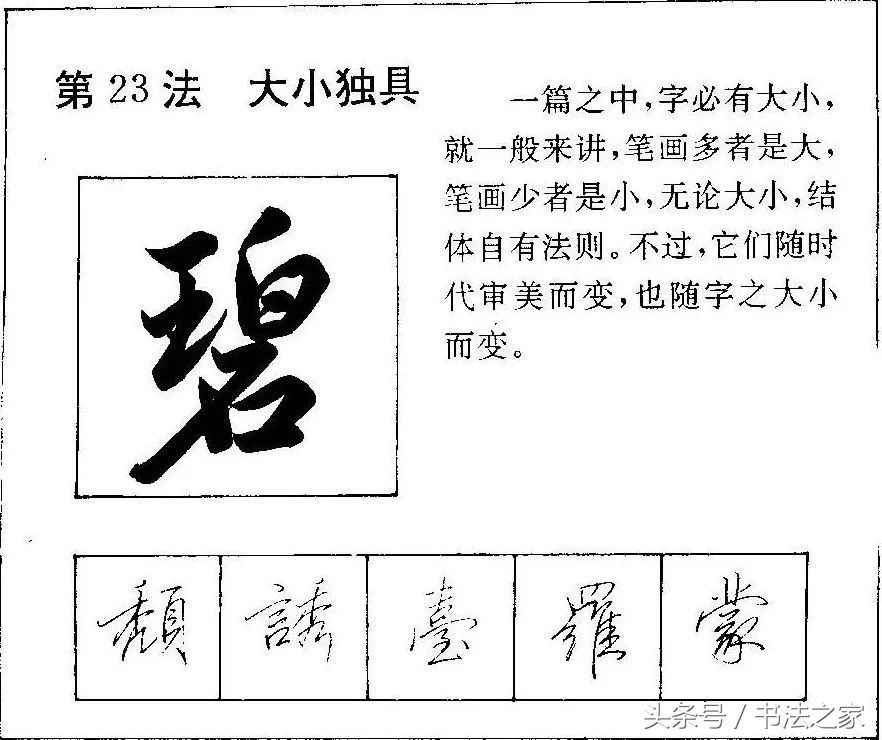 第23法 大小独具
一篇之中，字必有大小，
就一般来讲，笔画多者是大，
笔画少者是小，无论大小，结
体自有法则。不过，它们随时
代审美而变，也随字之大小
而变。
碧
頹 誘 臺 羅 蒙
头条号 / 书法之家